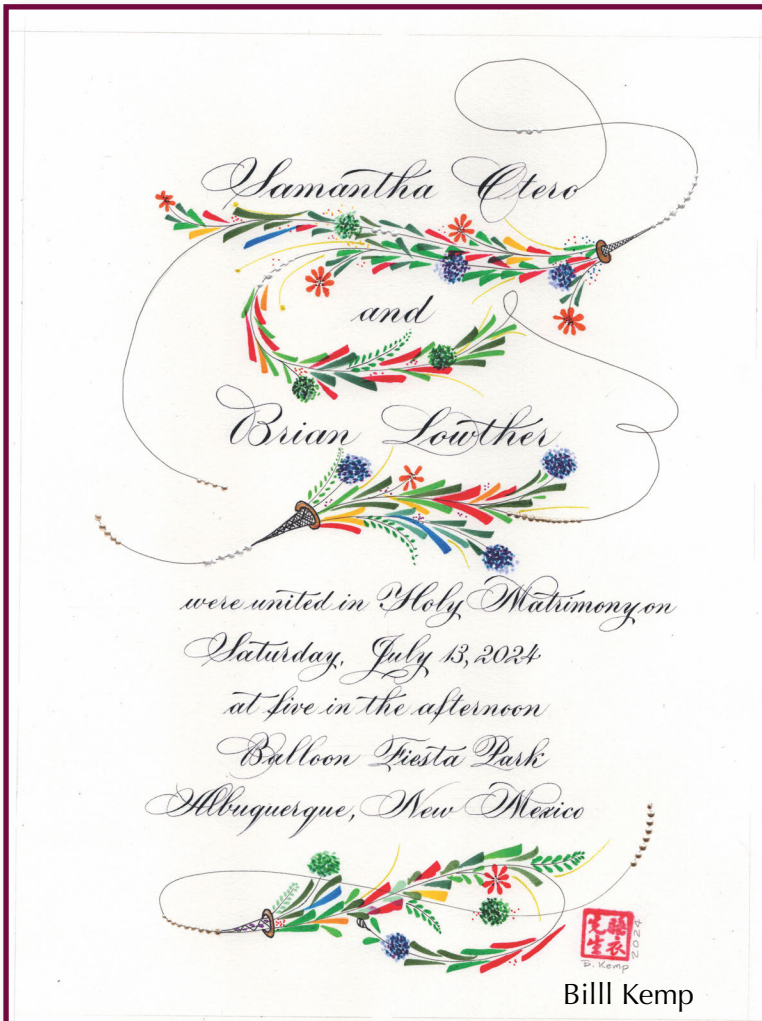 Samantha Otero
and
Brian Lowther
were united in Holy Matrimony on
Saturday, July 13, 2024
at five in the afternoon
Balloon Fiesta Park
Albuquerque, New Mexico
2024
B. Kemp
Billl Kemp